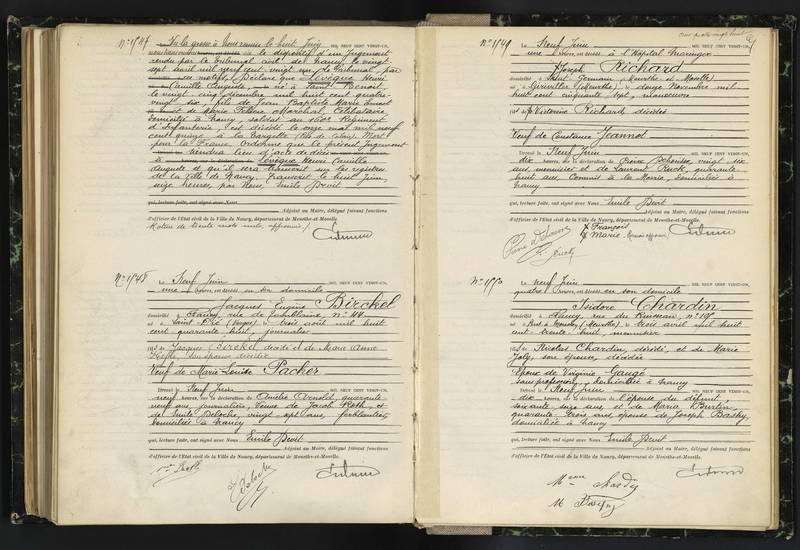 N° 1547 Vu la grosse à Nous remise le huit Juin MIL NEUF CENT VINGT-UN,
le dispositif d'un Jugement
rendu par le tribunal civil de Nancy le vingt-
sept avril mil neuf cent vingt un. Le Tribunal, par
ces motifs, Déclare que Lévêque Henri
Camille Auguste, né à Saint Benoit,
le vingt cinq décembre mil huit cent quatre-
vingt dix, fils de Jean Baptiste Marie Ernest
et de Marie Maréchal, Célibataire,
domicilié à Nancy, soldat au 160e Régiment
d'Infanterie, est décédé le onze mai mil neuf
cent quinze à la Targette (Pas de Calais) "Mort
pour la France", ordonne que le présent Jugement
tiendra lieu d'acte de décès
à Lévêque Henri Camille
Auguste et qu'il sera transcrit sur les registres
de la Ville de Nancy. Transcrit le huit Juin,
seize heures, par Nous, Emile Devit
qui, lecture faite, ont signé avec Nous
Adjoint au Maire, délégué faisant fonctions
d'officier de l'Etat civil de la Ville de Nancy, département de Meurthe-et-Moselle.
N° 1548 Le Neuf Juin MIL NEUF CENT VINGT-UN,
une heures, est décédé en son domicile
Jacques Eugène Birckel
domicilié à Nancy, rue de 44
né à Saint Dié (Vosges) le trois août mil huit
cent quarante huit, journalier
fils de Jacques Birckel décédé et de Marie Anne
son épouse décédée
Veuf de Marie-Louise Pacher
Dressé le Neuf Juin MIL NEUF CENT VINGT-UN,
neuf heures, sur la déclaration de Amélie Arnold, quarante
neuf ans, journalière, Veuve de Jacob Roth, et
de Emile Deloche, vingt sept ans, ferblantier,
domiciliés à Nancy
qui, lecture faite, ont signé avec Nous Emile Devit
Adjoint au Maire, délégué faisant fonctions
d'officier de l'Etat civil de la Ville de Nancy, département de Meurthe-et-Moselle.
N° 1549 Le Neuf Juin MIL NEUF CENT VINGT-UN,
une heures, est décédé à l'Hôpital Maringer
Joseph Richard
domicilié à Saint Germain (Meurthe et Moselle)
né à (Meurthe) le douze Novembre mil
huit cent cinquante sept, manœuvre
fils de Victorine Richard décédée
Veuf de Constance Jeannot
Dressé le Neuf Juin MIL NEUF CENT VINGT-UN,
dix heures, sur la déclaration de Pierre vingt six
ans, menuisier et de Laurent Ruck, quarante
huit ans, Commis à la Mairie, domiciliés à
Nancy
qui, lecture faite, ont signé avec Nous Emile Devit
Adjoint au Maire, délégué faisant fonctions
d'officier de l'Etat civil de la Ville de Nancy, département de Meurthe-et-Moselle.
X François
X Marie
N° 1550 Le neuf Juin MIL NEUF CENT VINGT-UN,
quatre heures, est décédé en son domicile
Isidore Chardin
domicilié à Nancy, rue du Ruisseau, n° 19
né à (Meurthe) le trois avril mil huit
cent trente huit,
fils de Nicolas Chardin, décédé, et de Marie
Joly, son épouse, décédée
Epoux de Virginie Gaugé
sans profession, domiciliée à Nancy
Dressé le Neuf Juin MIL NEUF CENT VINGT-UN,
dix heures, sur la déclaration de l'épouse du défunt
soixante seize ans et de Maria
quarante trois ans, épouse de Joseph
domiciliée à Nancy
qui, lecture faite, ont signé avec Nous Emile Devit
Adjoint au Maire, délégué faisant fonctions
d'officier de l'Etat civil de la Ville de Nancy, département de Meurthe-et-Moselle.